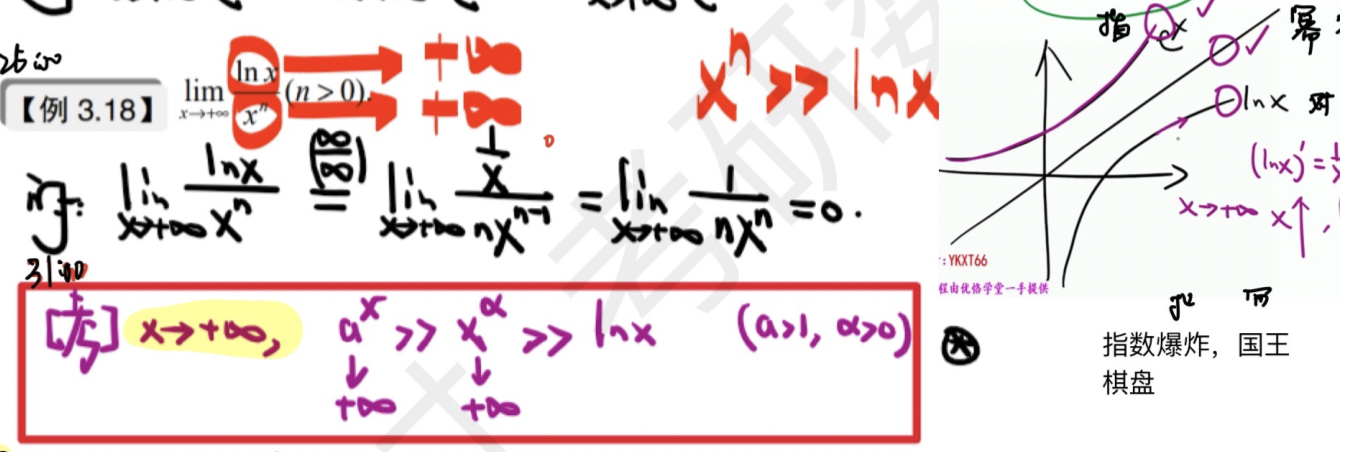 【例 3.18】 lim x→+∞ ln x / xⁿ (n > 0). +∞ +∞
xⁿ >> ln x
lim x→+∞ lnx / xⁿ (∞/∞) = lim x→+∞ (1/x) / nxⁿ⁻¹ = lim x→+∞ 1 / nxⁿ = 0.
x→+∞, aˣ >> x^α >> ln x (a>1, α>0)
+∞ +∞
指 eˣ 幂
lnx 对
(lnx)' =
x→+∞ x↑,
: YKXT66
程由优恪学堂一手提供
指数爆炸，国王
棋盘